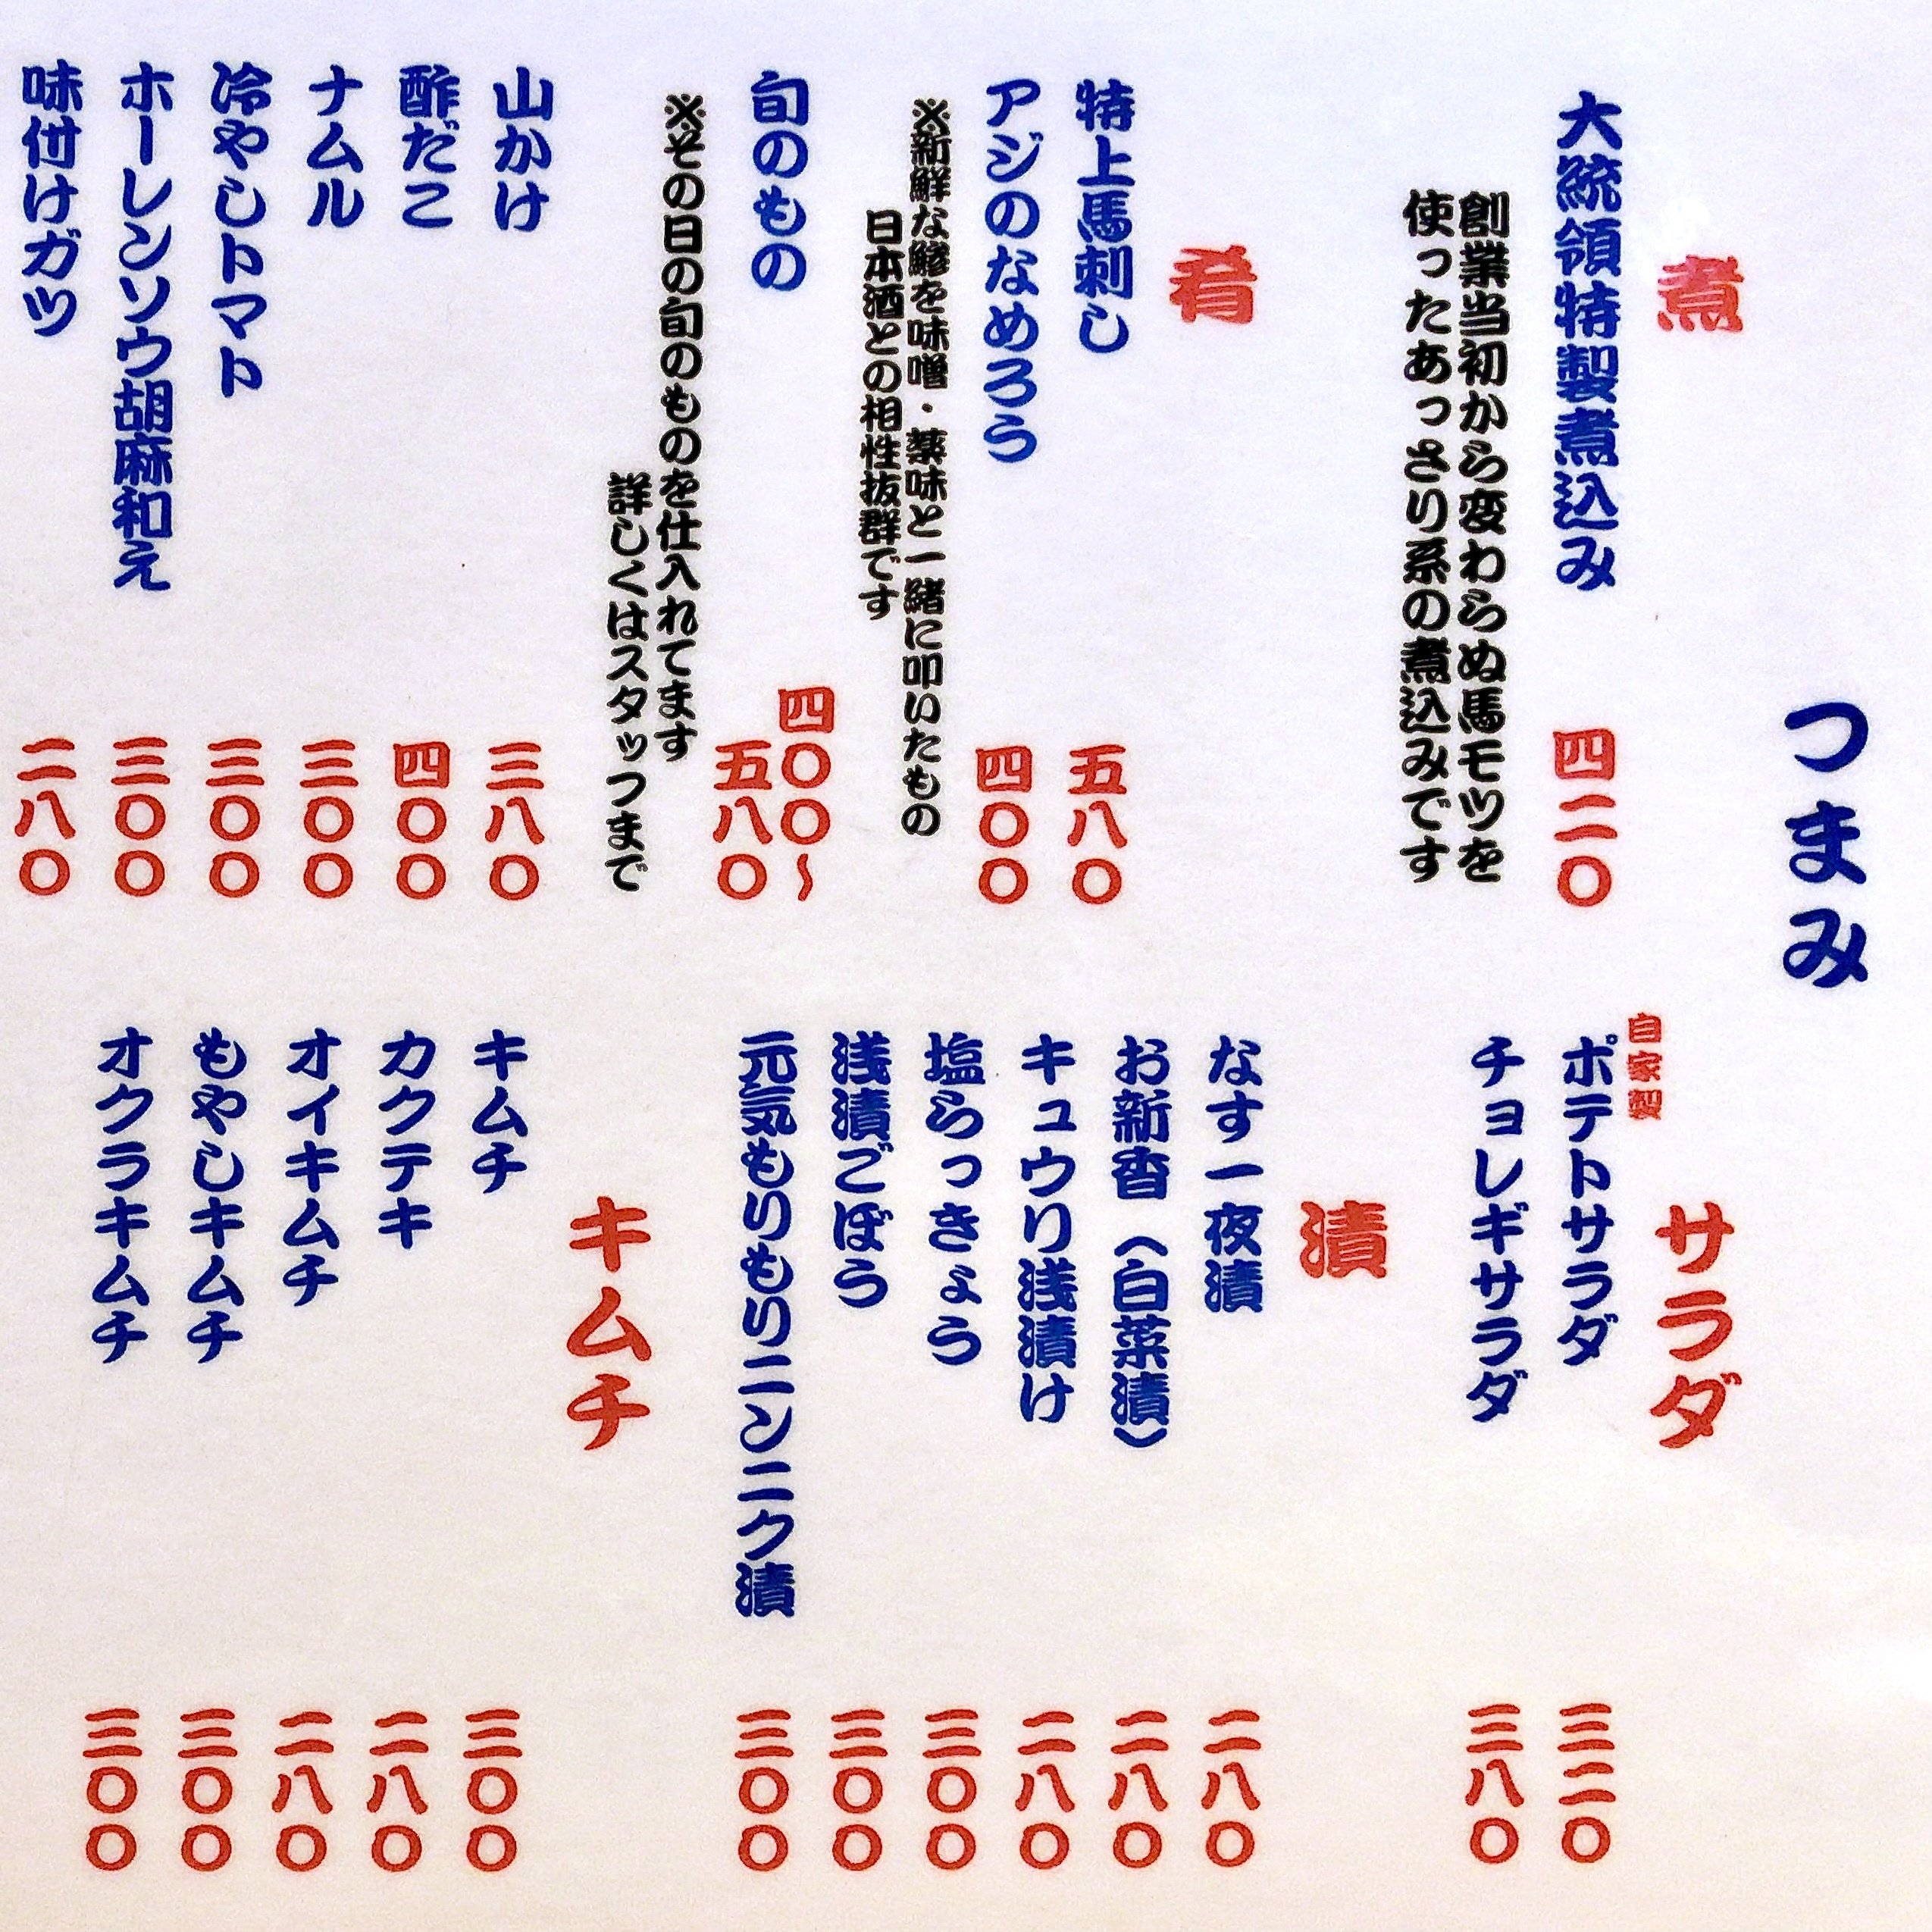 つまみ
煮
大統領特製煮込み
四二〇
創業当初から変わらぬ馬モツを
使ったあっさり系の煮込みです
肴
特上馬刺し
五八〇
アジのなめろう
四〇〇
※新鮮な鯵を味噌・薬味と一緒に叩いたもの
日本酒との相性抜群です
旬のもの
四〇〇～
五八〇
※その日の旬のものを仕入れてます
詳しくはスタッフまで
山かけ
三八〇
酢だこ
四〇〇
ナムル
三〇〇
冷やしトマト
三〇〇
ホーレンソウ胡麻和え
三〇〇
味付けガツ
二八〇
サラダ
自家製
ポテトサラダ
三二〇
チョレギサラダ
三八〇
漬
なす一夜漬
二八〇
お新香（白菜漬）
二八〇
キュウリ浅漬け
二八〇
塩らっきょう
三〇〇
浅漬ごぼう
三〇〇
元気もりもりニンニク漬
三〇〇
キムチ
キムチ
三〇〇
カクテキ
二八〇
オイキムチ
二八〇
もやしキムチ
三〇〇
オクラキムチ
三〇〇